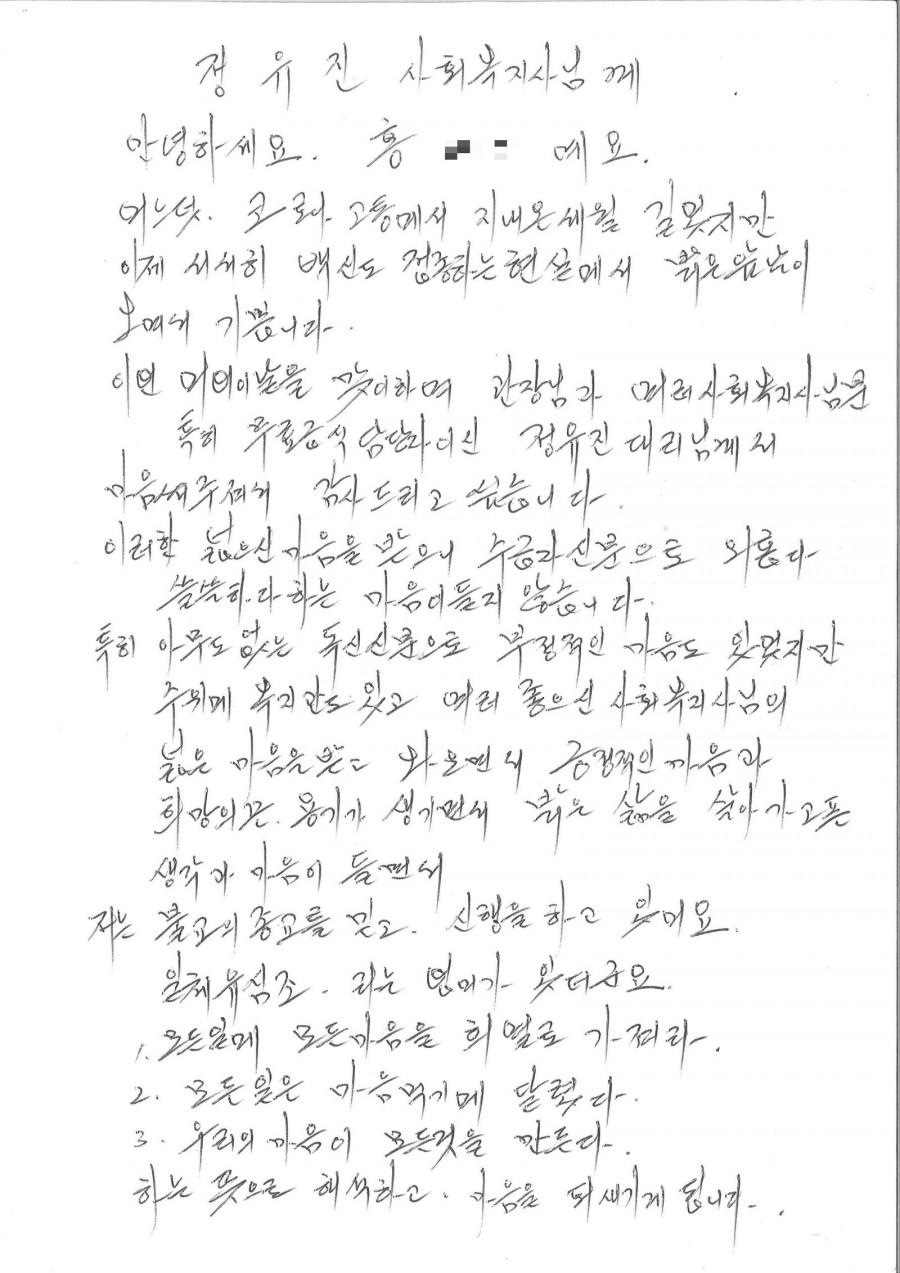 정유진 사회복지사님께
안녕하세요. 홍 예요.
어느덧. 코로나 고통에서 지내온 세월 길엇지만
이제 서서히 백신도 접종하는 현실에서 밝은 앞날이
보여서 기쁩니다.
이번 어버이날을 맞이하며 관장님과 여러 사회복지사님분
특히 무료급식 담당자이신 정유진 대리님께서
마음써주셔서 감사드리고 싶습니다
이러한 넓으신 마음을 받으니 수급자 신분으로 외롭다
쓸쓸하다 하는 마음이 들지 않습니다.
특히 아무도 없는 독신 신분으로 부정적인 마음도 잇엇지만
주위에 복지관도 잇고 여러 좋으신 사회복지사님의
넓은 마음을 받고 와 보면서 긍정적인 마음과
희망의 끈. 용기가 생기면서 밝은 삶을 살아가고픈
생각과 마음이 들면서
저는 불교의 종교를 믿고. 신행을 하고 잇어요.
일체유심조. 라는 언어가 잇더군요.
1. 모든일에 모든마음을 희열로 가져라.
2. 모든 일은 마음먹기에 달렷다.
3. 우리의 마음이 모든것을 만든다.
하는 뜻으로 해석하고. 마음을 되새기게 됩니다.